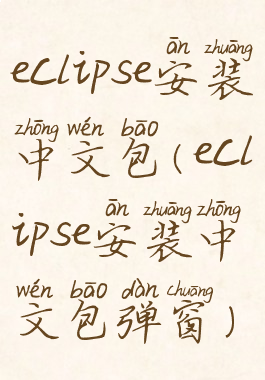 ān zhuāng
eclipse安装
zhōng wén bāo
中文包(ecl
ān zhuāng zhōng
ipse安装中
wén bāo dàn chuāng
文包弹窗)